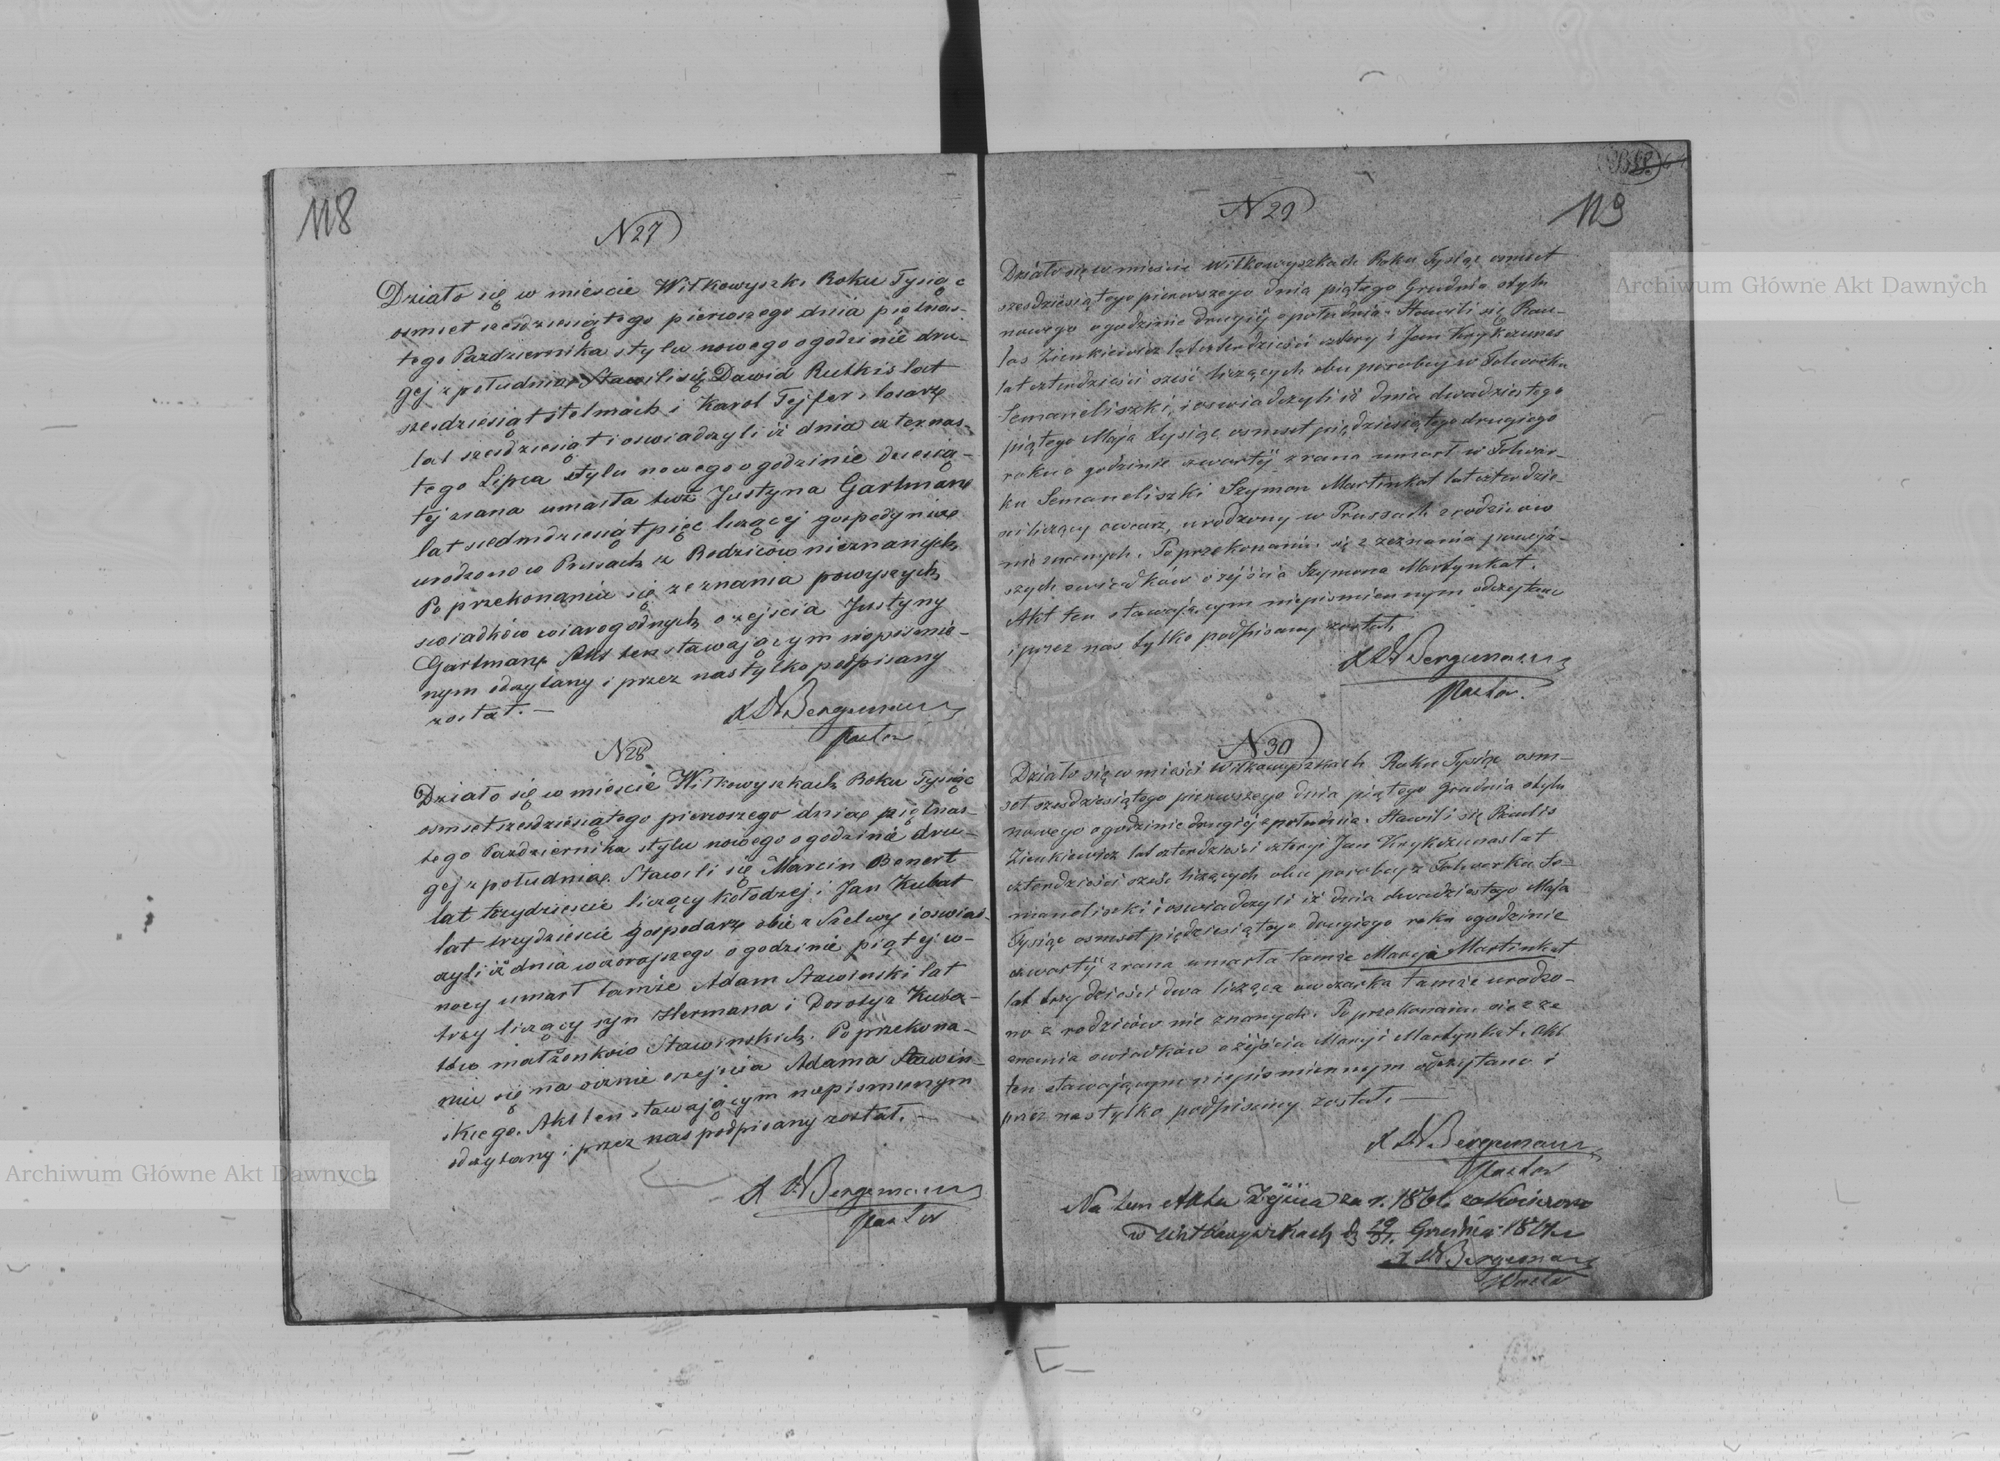 118
N 27
Działo się w mieście Wiłkowyszki Roku Tysiąc
osmset szesdziesiątego pierwszego dnia piętnas-
tego Pazdziernika stylu nowego o godzinie dru-
giej z południa. Stawili się Dawid Rutkis lat
szesdziesiąt stelmach i Karol Tejfer
lat szesdziesiąt i oswiadczyli iż dnia czternas-
tego Lipca stylu nowego o godzinie dziesią-
tej zrana umarła tuż Justyna Gartman
lat siedmdziesiąt pięć liczącej gospodynią
urodzono w Prusach z Rodziców nieznanych,
Po przekonaniu się zeznania powyszych
swiadków wiarogodnych o zejscia Justyny
Gartman. Akt ten stawającym niepismie-
nym odczytany i przez nas tylko podpisany
został. —
X Bergemann
Pastor
N 28
Działo się w mieście Wiłkowyszkach Roku Tysiąc
osmset szesdziesiątego pierwszego dnia piętnas-
tego Pazdziernika stylu nowego o godzinie dru-
giej z południa. Stawili się Marcin Benert
lat trzydziescie liczący kołodzej i Jan Kubat
lat trzydziescie gospodarz obie z Szelwy i oswiad-
czyli iż dnia wczorajszego o godzinie piątej w-
nocy umarł tamże Adam Stawinski lat
trzy liczący syn Hermana i Dorotya Kuba-
tow małżonkow Stawinskich. Po przekona-
niu się na ocznie o zejscia Adama Stawin-
skiego. Akt ten stawającym niepismienym
odczytany i przez nas podpisany został. —
X Bergemann
Pastor
119
N 29
Działo się w mieście Wiłkowyszkach Roku Tysiąc osmset
szesdziesiątego pierwszego dnia piątego Grudnia stylu
nowego o godzinie drugiej z południa. Stawili się Pau-
las Zienkiewicz lat czterdzieści cztery i Jan Krykszunas
lat czterdzieści sześć liczących obu parobcy w Folwarku
Semaneliszki, i oswiadczyli iż dnia dwadziestego
piątego Maja tysiąc osmset pięćdziesiątego drugiego
roku o godzinie czwartej z rana umarł w Folwar-
ku Semaneliszki Szymon Martinkat lat czterdzie-
ści liczący owczarz, urodzony w Prusach z rodziców
nieznanych. Po przekonaniu się z zeznania powyż-
szych swiadków o zejścia Szymona Martynkat.
Akt ten stawającym niepismiennym odczytano
i przez nas tylko podpisany został.
X Bergemann
Pastor.
N 30
Działo się w mieści Wiłkowyszkach Roku Tysiąc osm-
set szesdziesiątego pierwszego dnia piątego Grudnia stylu
nowego o godzinie drugiej z południa. Stawili się Paulis
Zienkiewicz lat czterdzieści cztery i Jan Krykszunas lat
czterdzieści sześć liczących obu parobcy z Folwarku Se-
maneliszki i oswiadczyli iż dnia dwadziestego Maja
Tysiąc osmset pięćdziesiątego drugiego roku o godzinie
czwartej z rana umarła tamże Maryja Martinkat
lat trzydzieści dwa licząca owczarka tamże urodzo-
no z rodziców nie znanych. Po przekonaniu się z ze
znania swiadków o zejścia Maryi Martynkat. Akt
ten stawającym niepismiennym odczytano i
przez nas tylko podpisany został. —
X Bergemann
Pastor
Na tem Akta Zejścia za r. 1861 zakończono
w Wiłkowyszkach d. 19/31. Grudnia 1861 r.
X Bergemann
Pastor
Archiwum Główne Akt Dawnych
Archiwum Główne Akt Dawnych